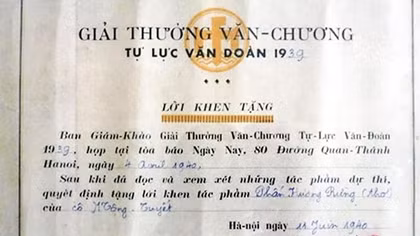 GIẢI THƯỞNG VĂN-CHƯƠNG
TỰ LỰC VĂN ĐOÀN 1939
LỜI KHEN TẶNG
Ban Giám-Khảo Giải Thưởng Văn-Chương Tự-Lực Văn-Đoàn
1939, họp tại tòa báo Ngày Nay, 80 Đường Quan-Thánh
Hanoi, ngày 4 Avril 1940.
Sau khi đã đọc và xem xét những tác phẩm dự thi,
quyết định tặng lời khen tác phẩm Phấn Hương Rừng (thơ)
của cô Mộng-Tuyết
Hà-nội ngày 11 Juin 1940